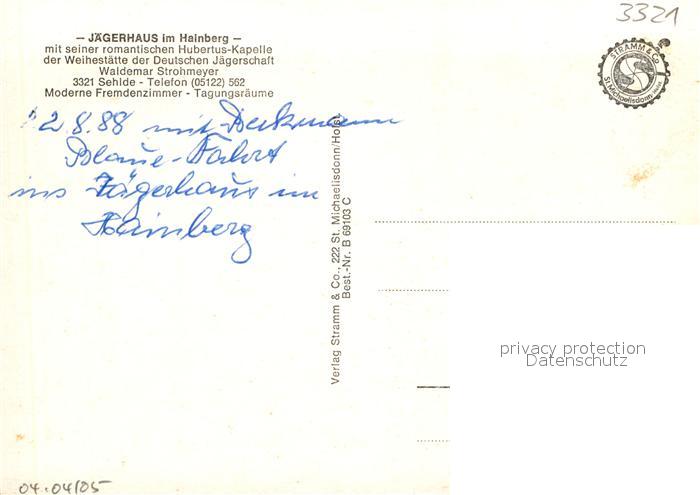 3321
— JÄGERHAUS im Hainberg —
mit seiner romantischen Hubertus-Kapelle
der Weihestätte der Deutschen Jägerschaft
Waldemar Strohmeyer
3321 Sehlde - Telefon (05122) 562
Moderne Fremdenzimmer - Tagungsräume
STRAMM & CO.
St. Michaelisdonn
2.8.88 mit
Blaue-Fahrt
ins Jägerhaus im
Hainberg
Verlag Stramm & Co., 222 St. Michaelisdonn/Holst.
Best.-Nr. B 69103 C
privacy protection
Datenschutz
04.04/05